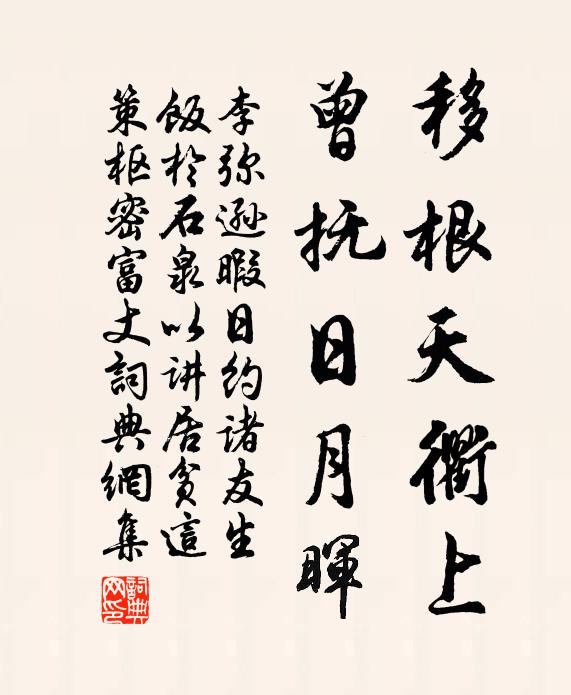 移根天衢上
曾抚日月暉
李弥遜暇日约诸友生
飯於石泉以讲居贫這
策枢密富丈詞典網集
詞典网印